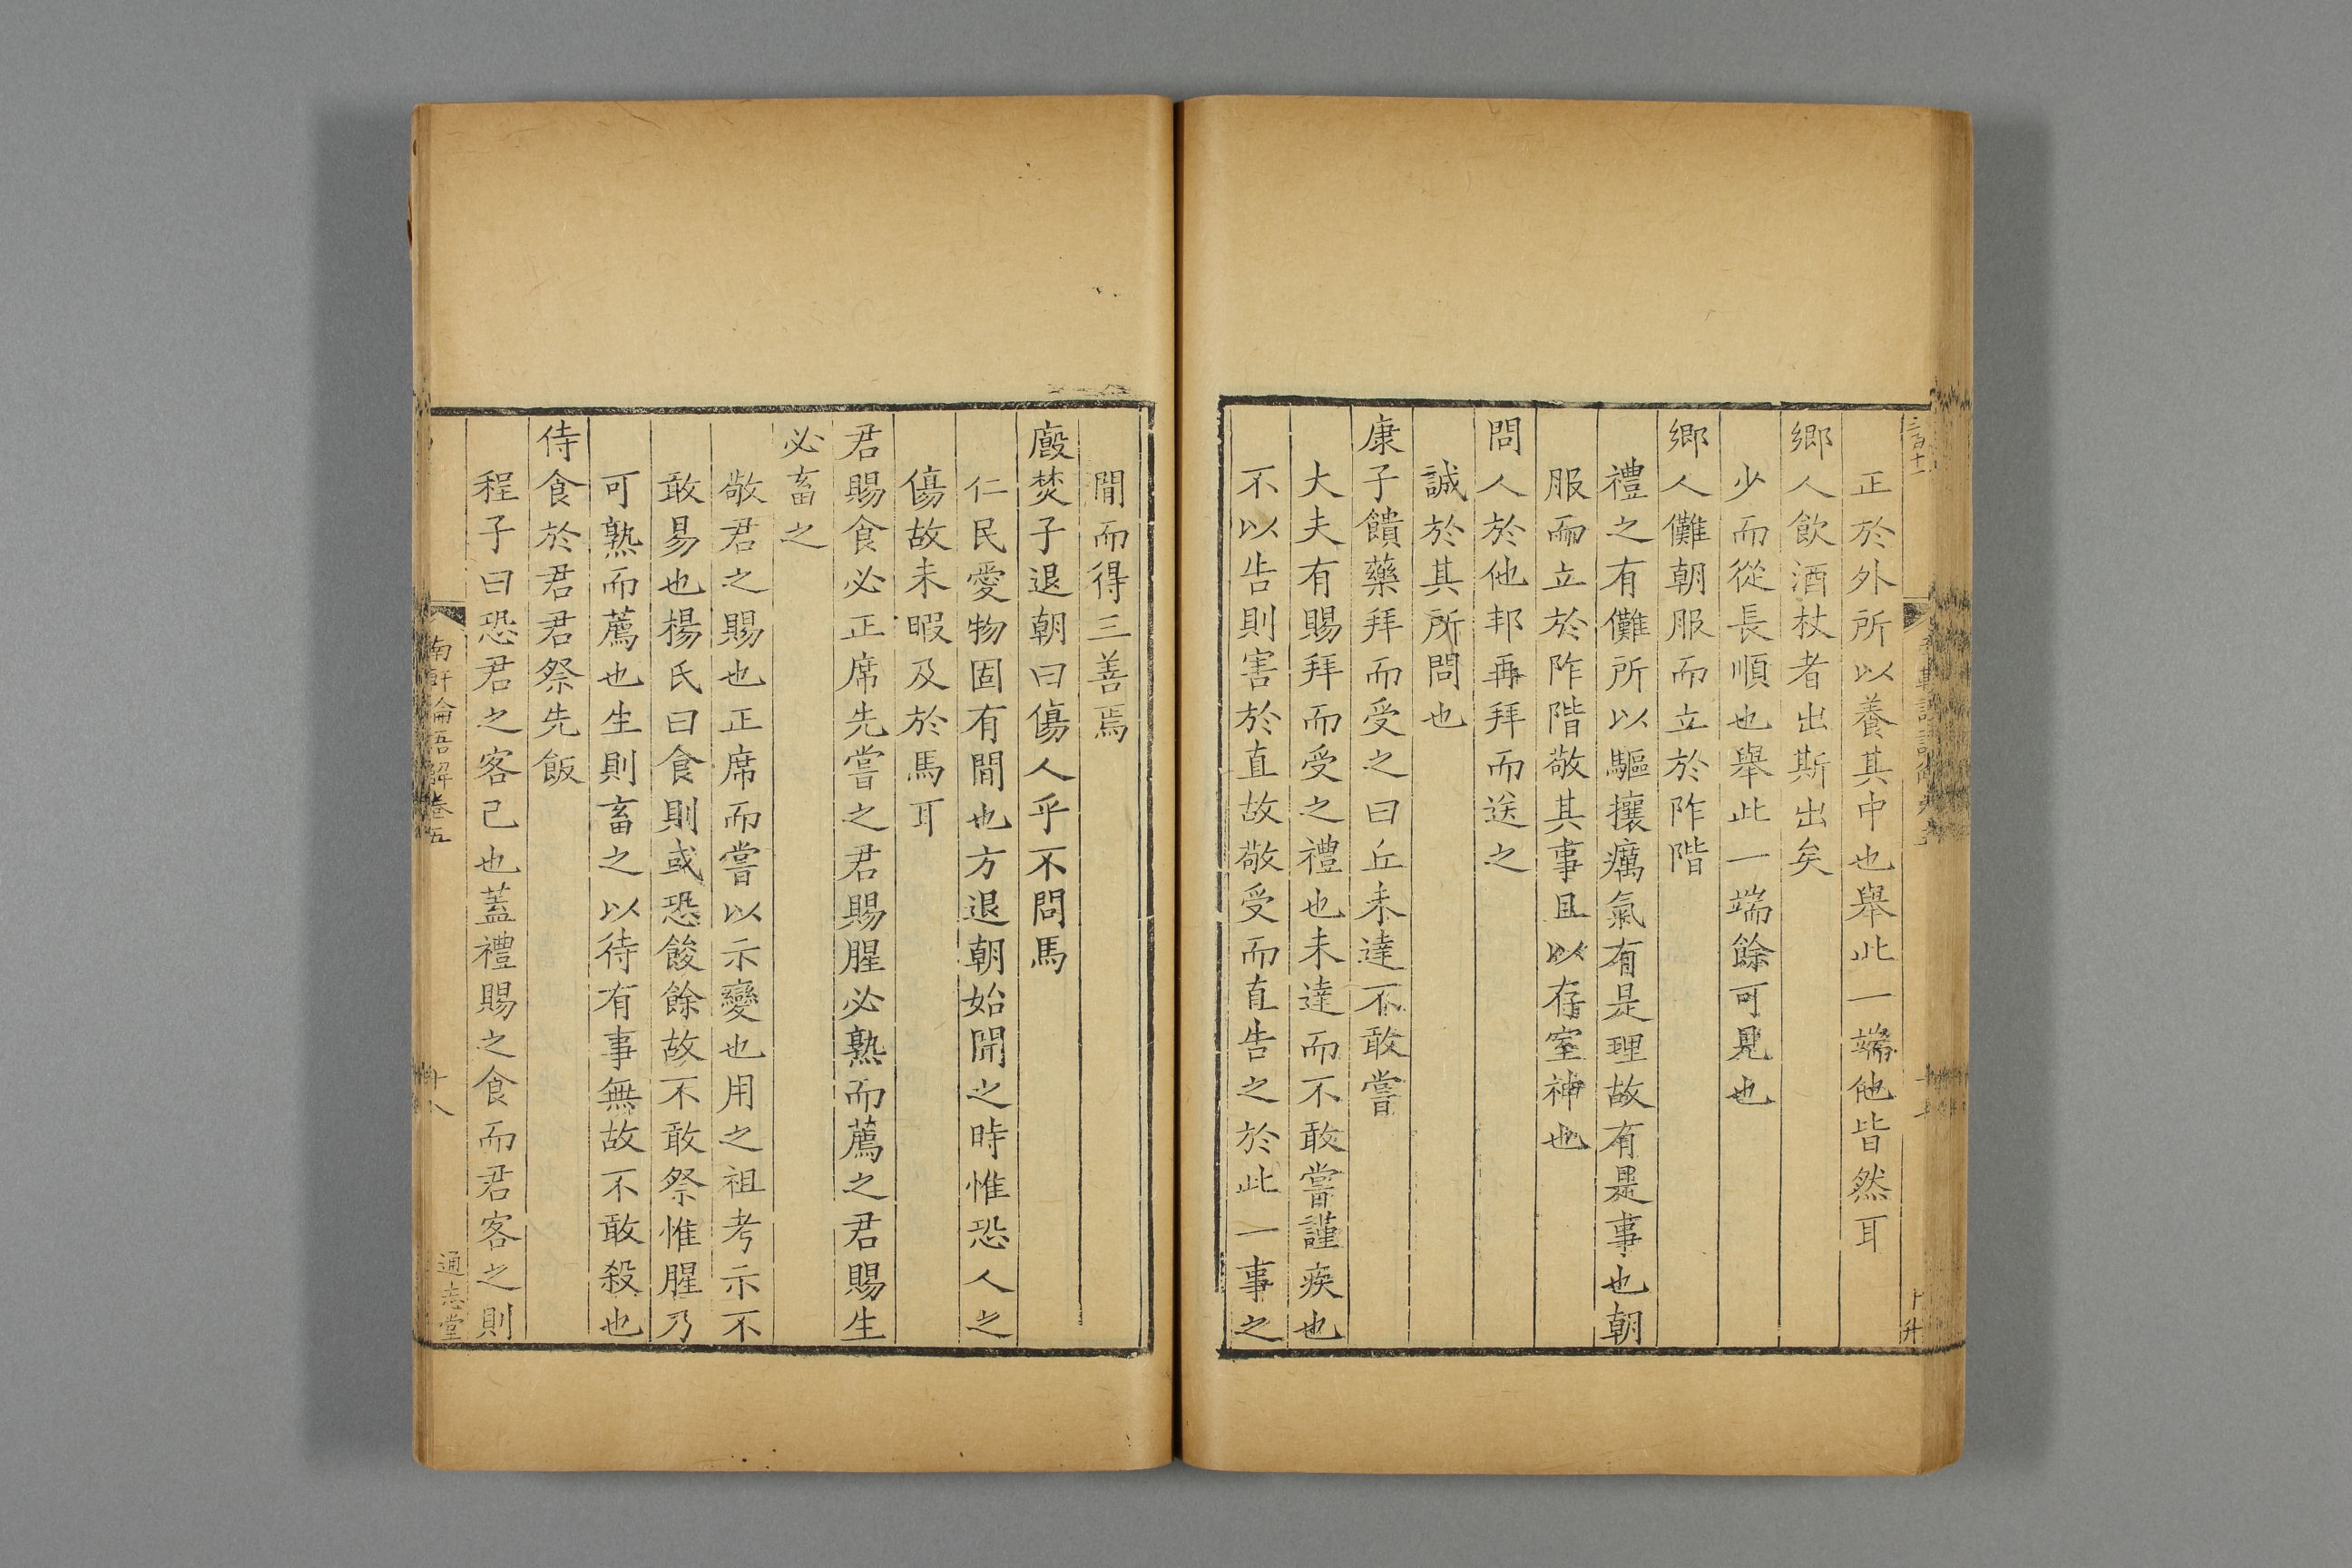 正於外所以養其中也舉此一端他皆然耳
鄉人飲酒杖者出斯出矣
少而從長順也舉此一端餘可見也
鄉人儺朝服而立於阼階
禮之有儺所以驅攘癘氣有是理故有是事也朝
服而立於阼階敬其事且以存室神也
問人於他邦再拜而送之
誠於其所問也
康子饋藥拜而受之曰丘未達不敢嘗
大夫有賜拜而受之禮也未達而不敢嘗謹疾也
不以告則害於直故敬受而直告之於此一事之
閒而得三善焉
廄焚子退朝曰傷人乎不問馬
仁民愛物固有閒也方退朝始聞之時惟恐人之
傷故未暇及於馬耳
君賜食必正席先嘗之君賜腥必熟而薦之君賜生
必畜之
敬君之賜也正席而嘗以示變也用之祖考示不
敢易也楊氏曰食則或恐餕餘故不敢祭惟腥乃
可熟而薦也生則畜之以待有事無故不敢殺也
侍食於君君祭先飯
程子曰恐君之客己也蓋禮賜之食而君客之則
南軒論語解卷五
十八
通志堂